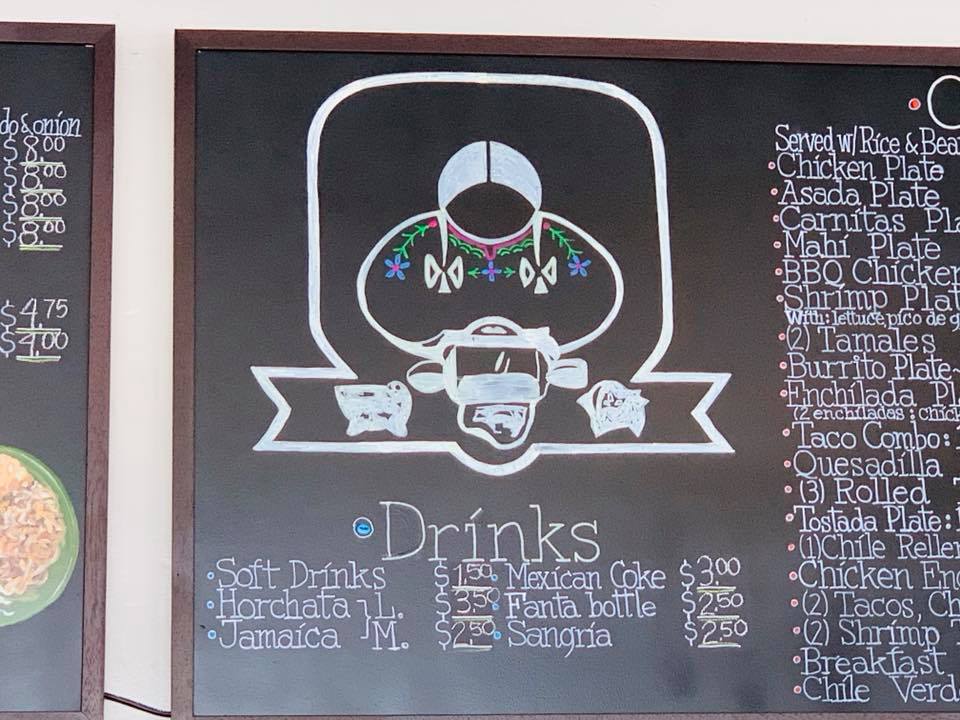 do & onion
$8.00
$8.00
$8.00
$8.00
$4.75
$4.00
Drinks
Soft Drinks $1.50
Horchata } L. $3.50
Jamaica } M. $2.50
Mexican Coke $3.00
Fanta bottle $2.50
Sangria $2.50
Served w/ Rice & Bea
Chicken Plate
Asada Plate
Carnitas Pla
Mahi Plate
BBQ Chicken
Shrimp Plat
With: lettuce, pico de g
(2) Tamales
Burrito Plate~
Enchilada Pl
(2 enchiladas: chick
Taco Combo:
Quesadilla
(3) Rolled T
Tostada Plate:
(1) Chile Rellen
Chicken Enc
(2) Tacos, Ch
(2) Shrimp T
Breakfast
Chile Verd